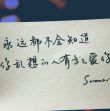 永远都不会知道
你乱想的人有多爱你